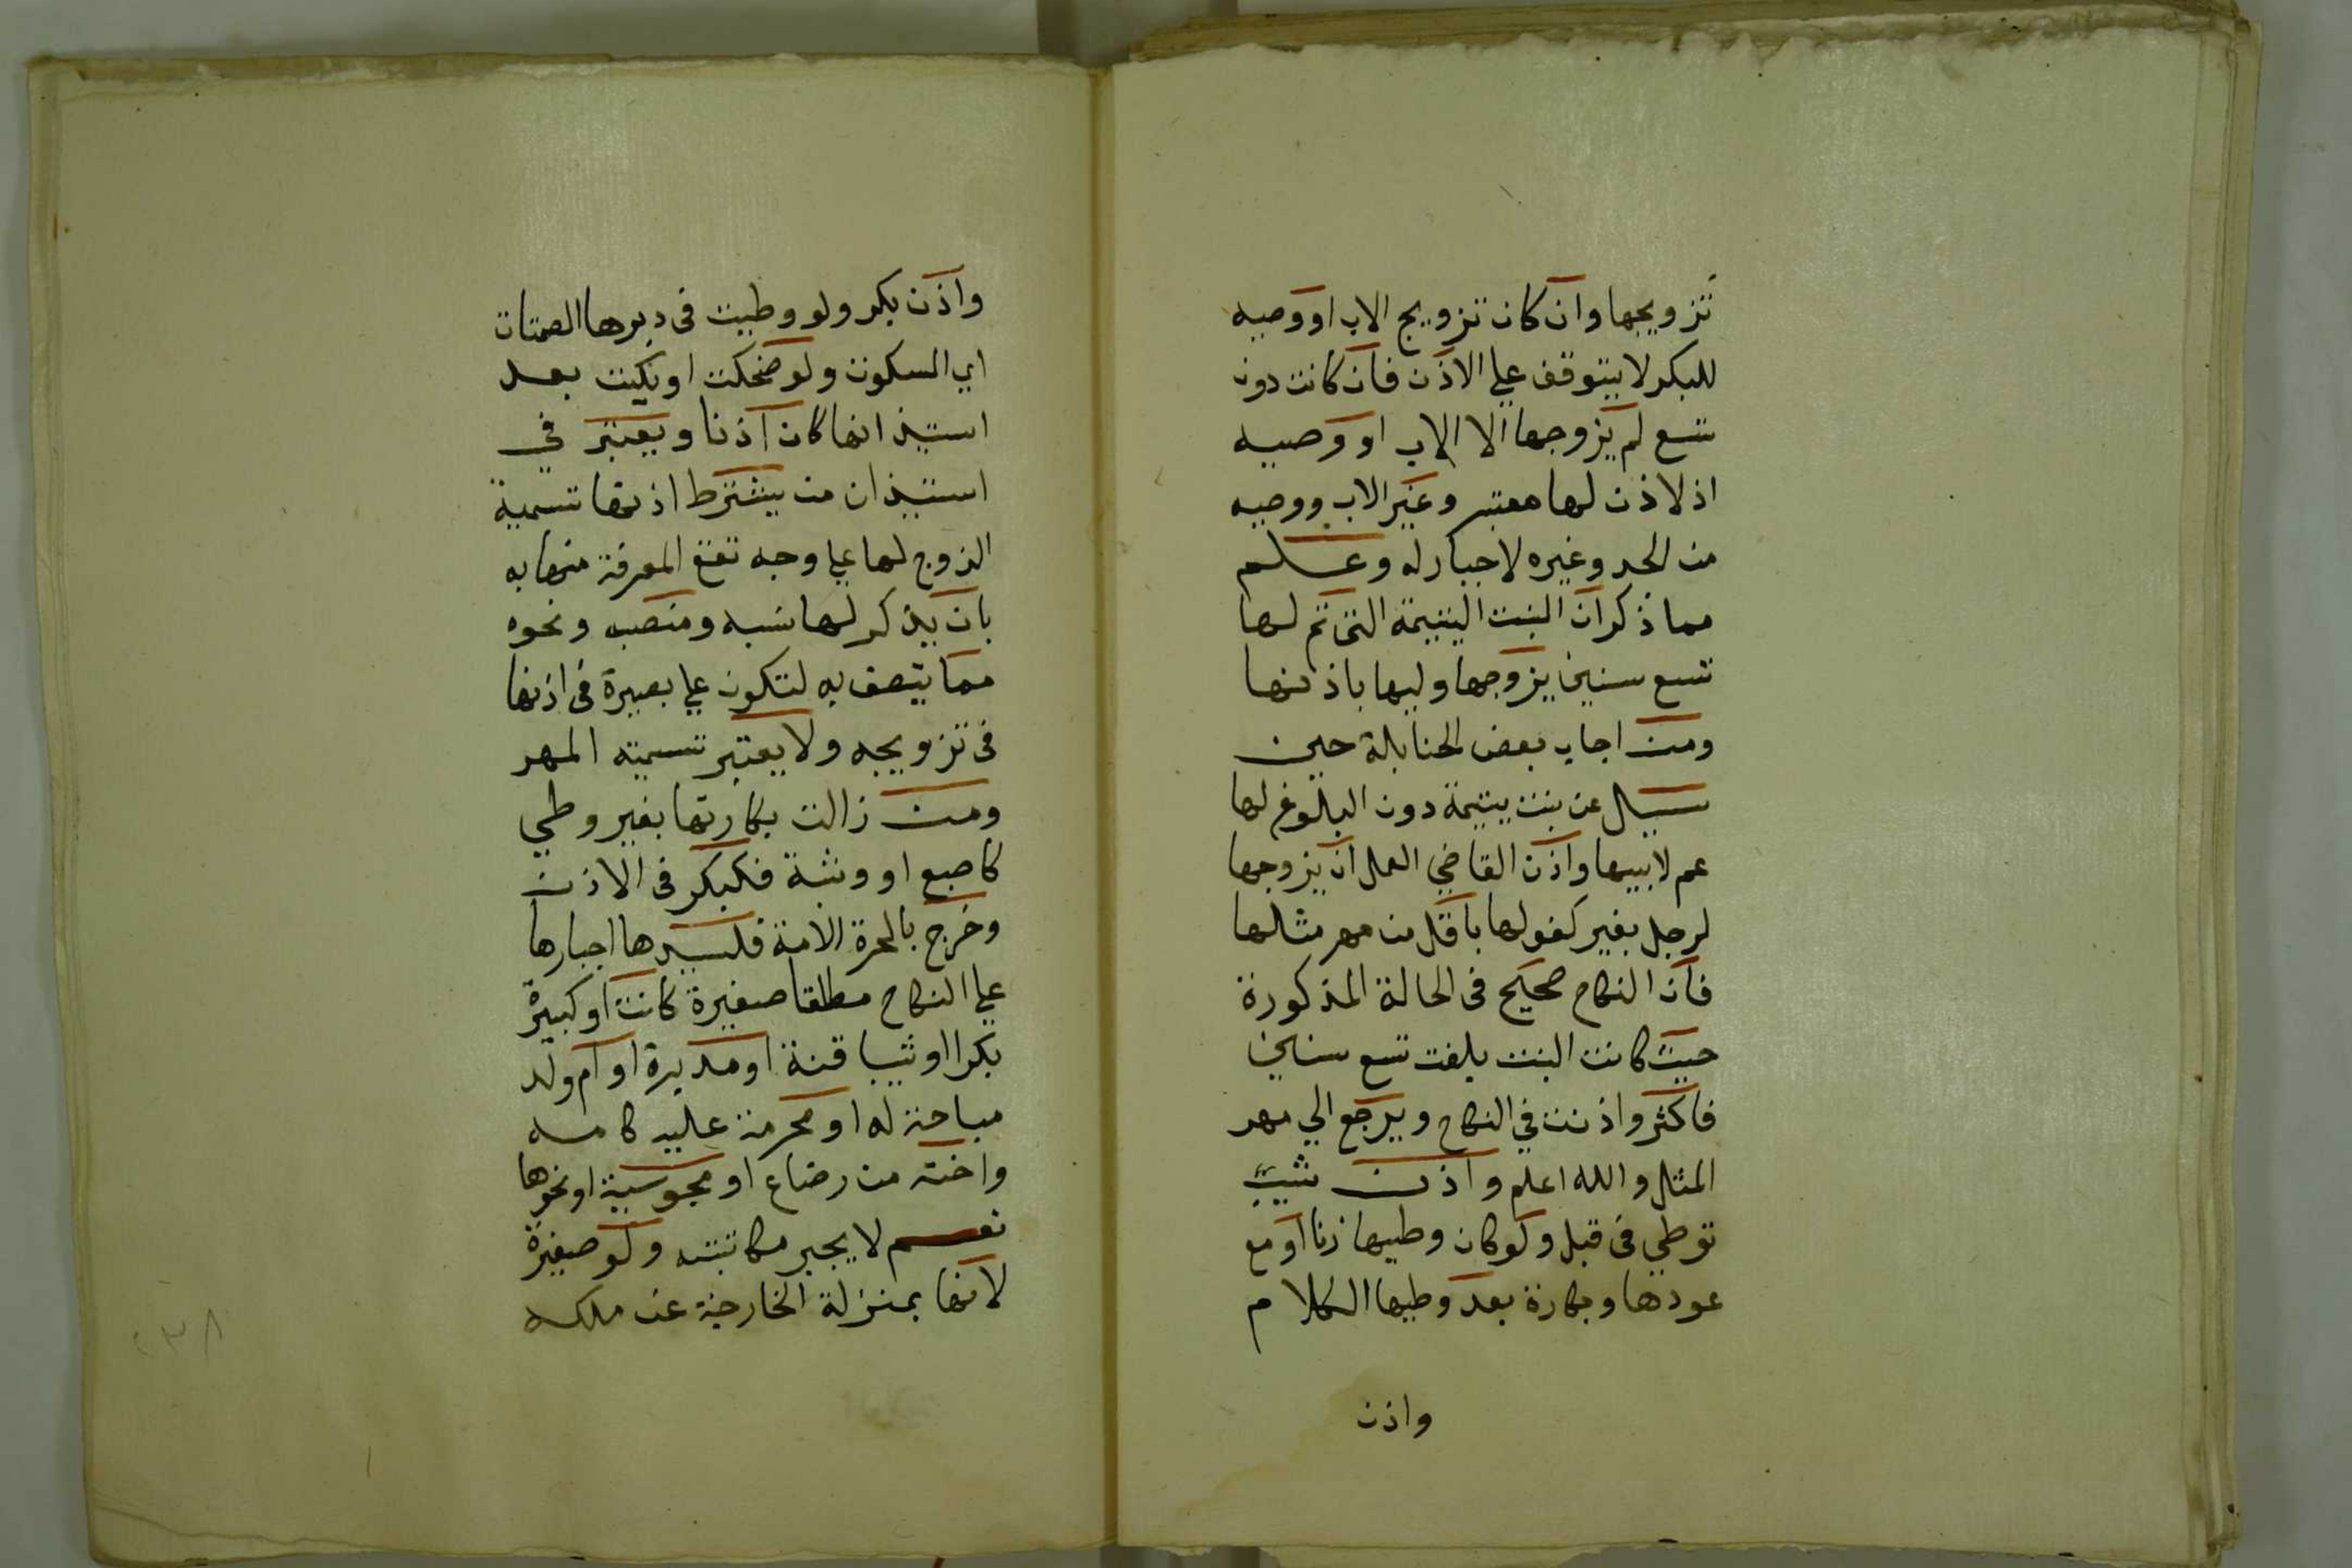 تزويجها وان كان تزويج الاب او وصيه
للبكر لا يتوقف علي الاذن فان كانت دون
تسع لم يزوجها الا الاب او وصيه
اذ لا اذن لها معتبر وغير الاب ووصيه
من الجد وغيره لا جبار له وعلم
مما ذكر ان البنت اليتيمة التي تم لها
تسع سنين يزوجها وليها باذنها
ومن اجاب بعض الحنابلة حين
سيل عن بنت يتيمة دون البلوغ لها
عم لابيها واذن القاضي العمل ان يزوجها
لرجل بغير كفو لها باقل من مهر مثلها
فان النكاح صحيح في الحالة المذكورة
حيث كانت البنت بلغت تسع سنين
فاكثر واذنت في النكاح ويرجع الي مهر
المثل والله اعلم واذن ثيب
توطي في قبل ولو كان وطيها زنا او مع
عودها وبكارة بعد وطيها الكلام
واذن
واذن بكر ولو وطيت في دبرها الصمات
اي السكوت ولو ضحكت او بكيت بعد
استيذانها كان اذنا ويعتبر في
استيذان من يشترط اذنها تسمية
الزوج لها علي وجه تقع المعرفة منها به
بان يذكر لها نسبه ومنصبه ونحوه
مما يتصف به لتكون علي بصيرة في اذنها
في تزويجه ولا يعتبر تسمية المهر
ومن زالت بكارتها بغير وطي
كاصبع او وثبة فكبكر في الاذن
وخرج بالحرة الامة فلسيدها اجبارها
علي النكاح مطلقا صغيرة كانت او كبيرة
بكرا او ثيبا قنة او مدبرة او ام ولد
مباحة له او محرمة عليه كامه
واخته من رضاع او مجوسية او نحوها
نعم لا يجبر مكاتبته ولو صغيرة
لانها بمنزلة الخارجة عن ملكه